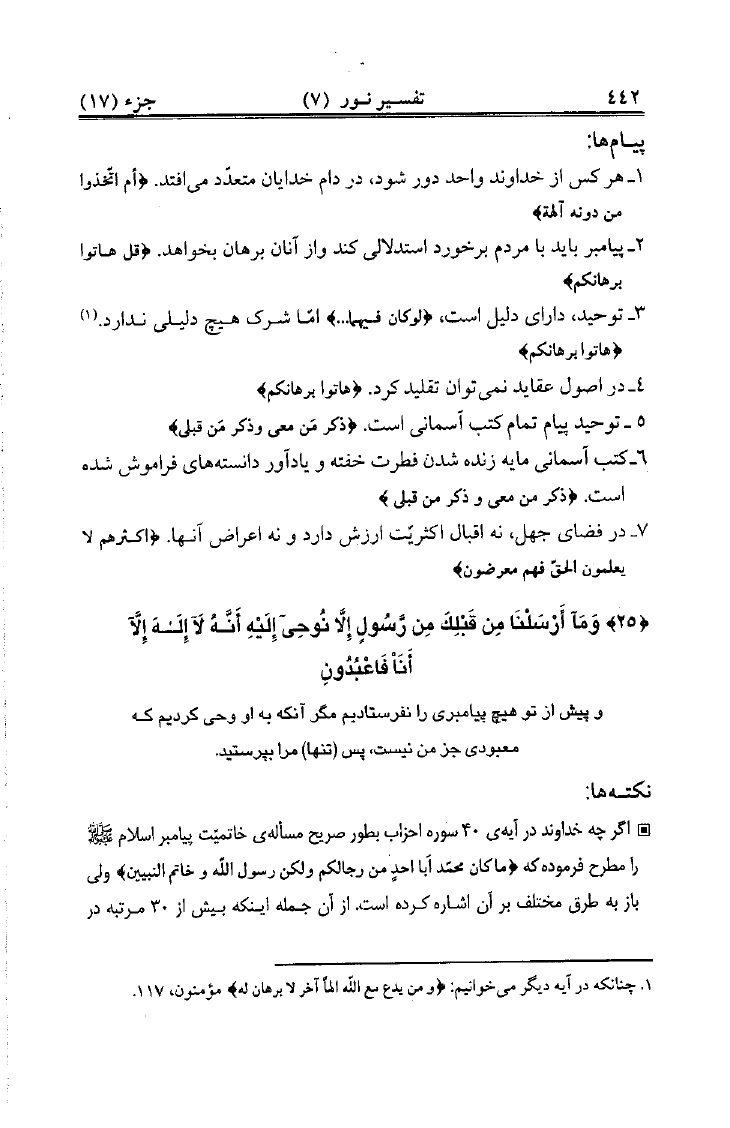 ٤٤٢ تفسیر نور (٧) جزء (١٧)
پیام‌ها:
١ـ هر کس از خداوند واحد دور شود، در دام خدایان متعدّد می‌افتد. ﴿أم اتّخذوا
من دونه آلهة﴾
٢ـ پیامبر باید با مردم برخورد استدلالی کند واز آنان برهان بخواهد. ﴿قل هاتوا
برهانکم﴾
٣ـ توحید، دارای دلیل است، ﴿لوکان فیهما...﴾ امّا شرک هیچ دلیلی ندارد.(١)
﴿هاتوا برهانکم﴾
٤ـ در اصول عقاید نمی‌توان تقلید کرد. ﴿هاتوا برهانکم﴾
٥ ـ توحید پیام تمام کتب آسمانی است. ﴿ذکر مَن معی وذکر مَن قبلی﴾
٦ـ کتب آسمانی مایه زنده شدن فطرت خفته و یادآور دانسته‌های فراموش شده
است. ﴿ذکر من معی و ذکر من قبلی ﴾
٧ـ در فضای جهل، نه اقبال اکثریّت ارزش دارد و نه اعراض آنها. ﴿اکثرهم لا
یعلمون الحقّ فهم معرضون﴾
﴿٢٥﴾ وَمَآ أَرْسَلْنَا مِن قَبْلِكَ مِن رَّسُولٍ إِلَّا نُوحِىٓ إِلَيْهِ أَنَّهُ لَآ إِلَـٰهَ إِلَّآ
أَنَاْ فَاعْبُدُونِ
و پیش از تو هیچ پیامبری را نفرستادیم مگر آنکه به او وحی کردیم که
معبودی جز من نیست، پس (تنها) مرا بپرستید.
نکته‌ها:
▣ اگر چه خداوند در آیه‌ی ۴۰ سوره احزاب بطور صریح مسأله‌ی خاتمیّت پیامبر اسلام ﷺ
را مطرح فرموده که ﴿ما کان محمّد أبا احدٍ من رجالکم ولکن رسول اللّه و خاتم النبیین﴾ ولی
باز به طرق مختلف بر آن اشاره کرده است. از آن جمله اینکه بیش از ۳۰ مرتبه در
١. چنانکه در آیه دیگر می‌خوانیم: ﴿و من یدع مع اللّه الهاً آخر لا برهان له﴾ مؤمنون، ١١٧.